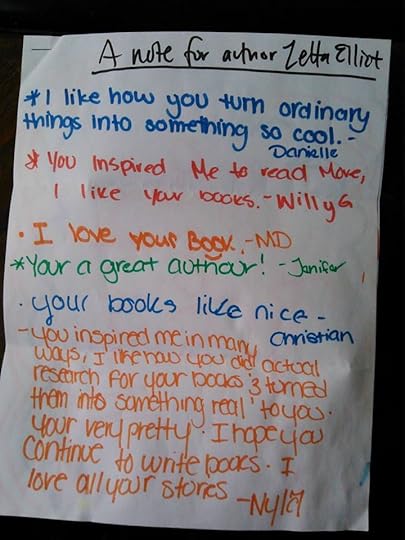 A note for author Zetta Elliot
*I like how you turn ordinary
things into something so cool.-
Danielle
* You Inspired Me to read More,
I like your books.-Willy G
· I love your Book.-MD
*Your a great authour! -Janifer
· your books like nice -
Christian
-you inspired me in many
ways, I like how you did actual
research for your books & turned
them into something real to you.
Your very pretty. I hope you
Continue to write books. I
love all your stories -Nyla